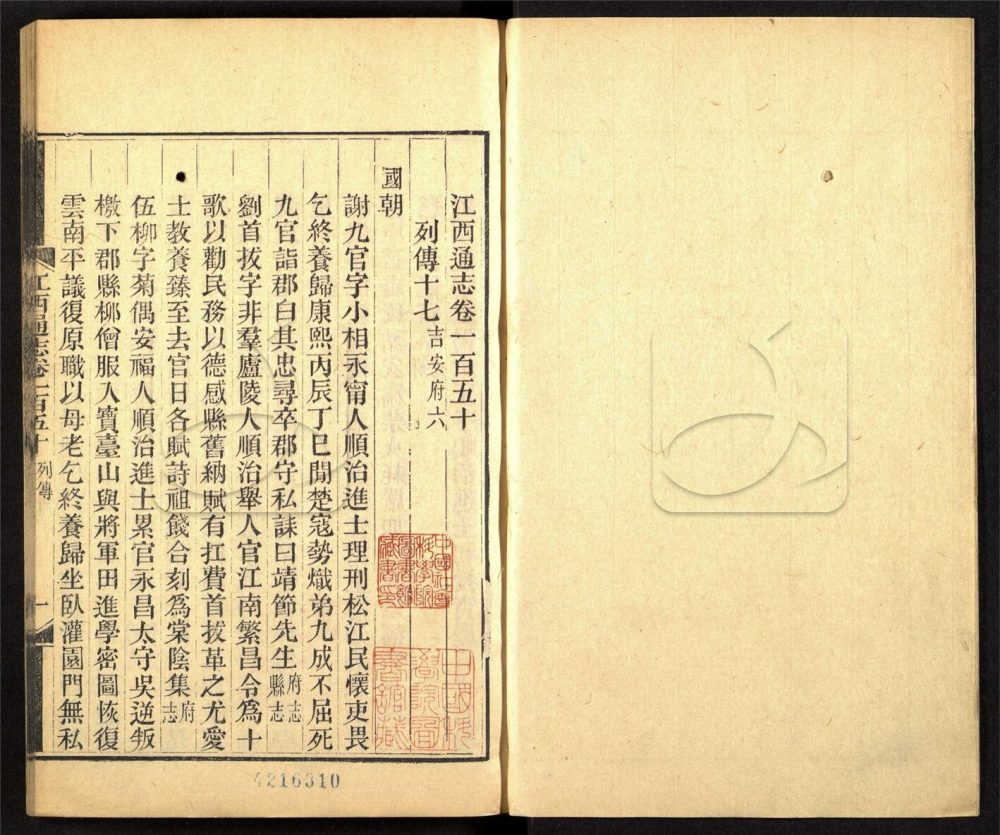 江西通志卷一百五十
列傳十七 吉安府六
國朝
謝九官字小相永甯人順治進士理刑松江民懷吏畏
乞終養歸康熙丙辰丁巳閒楚寇勢熾弟九成不屈死
九官詣郡白其忠尋卒郡守私誄曰靖節先生 府志 縣志
劉首拔字非羣廬陵人順治舉人官江南繁昌令爲十
歌以勸民務以德感縣舊納賦有扛費首拔革之尤愛
士教養臻至去官日各賦詩祖餞合刻爲棠陰集 府志
伍柳字菊偶安福人順治進士累官永昌太守吳逆叛
檄下郡縣柳僧服入寶臺山與將軍田進學密圖恢復
雲南平議復原職以母老乞終養歸坐臥灌園門無私
江西通志卷一百五十 列傳 一
中國社會科學院圖書館藏書印
4216310